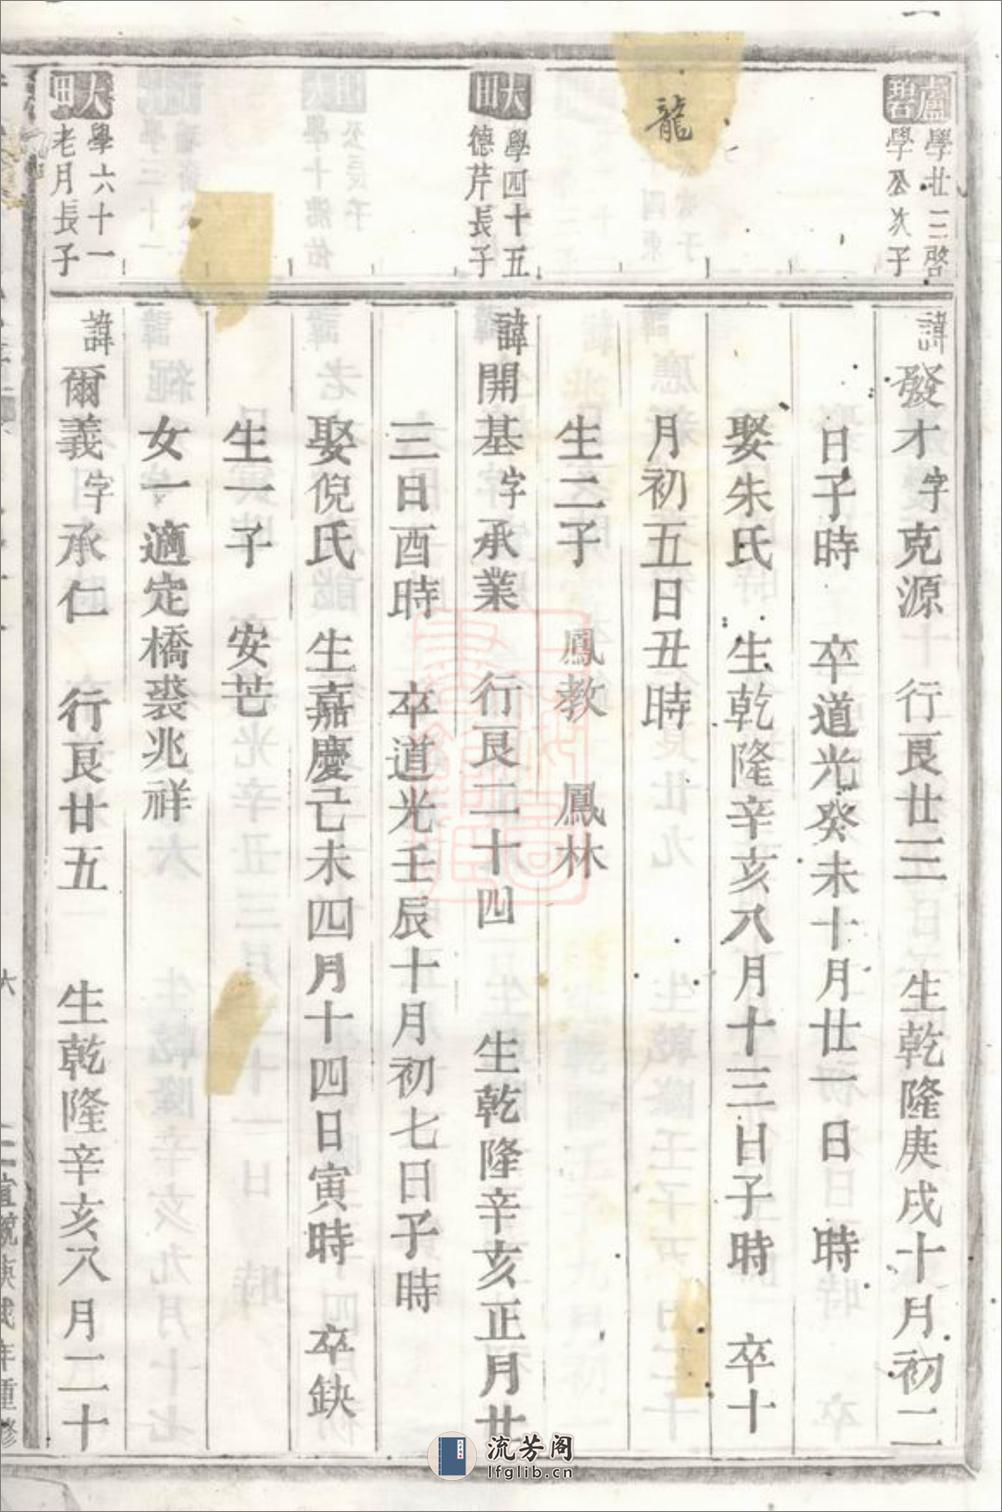 盧碧
學廿三啓
學癸次子
諱發才字克源 行艮廿三 生乾隆庚戌十月初二
日子時 卒道光癸未十月廿一日 時
娶朱氏 生乾隆辛亥八月十三日子時 卒十
月初五日丑時
龍
生二子 鳳教 鳳林
大田
學四十五
德芹長子
諱開基字承業 行艮二十四 生乾隆辛亥正月廿
三日酉時 卒道光壬辰十月初七日子時
娶倪氏 生嘉慶己未四月十四日寅時 卒缺
生一子 安芒
女一適定橋裘兆祥
大田
學六十一
老月長子
諱爾義字承仁 行艮廿五 生乾隆辛亥八月二十
流芳阁
lfglib.cn